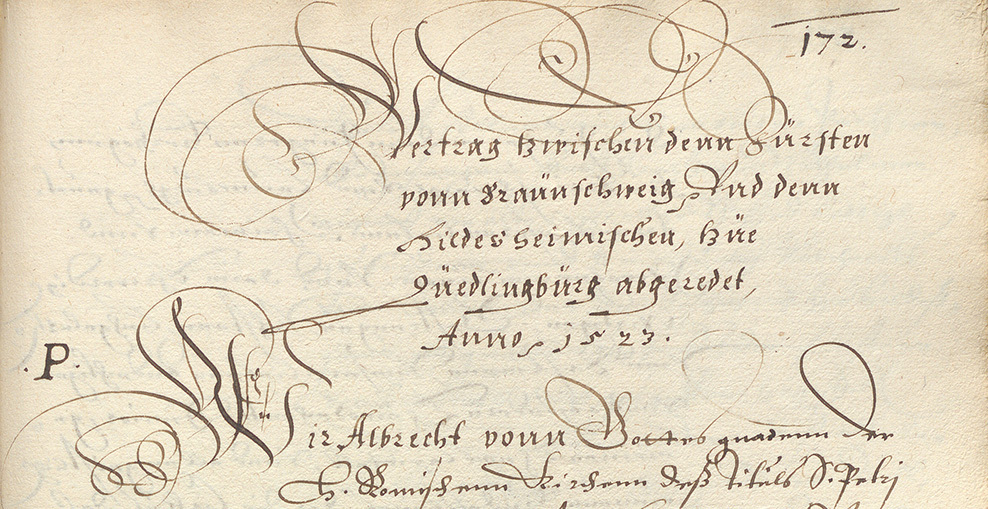 172.
Vertrag tzwischen denn Fürsten
vonn Braünschweig, Vnd denn
Hildesheimischen, tzüe
Qüedlingbürg abgeredet,
Anno, 1523.
.P.
Wir Albrecht vonn Gottes gnadenn der
H. Romischenn Kirchenn deß Tituls S. Petri